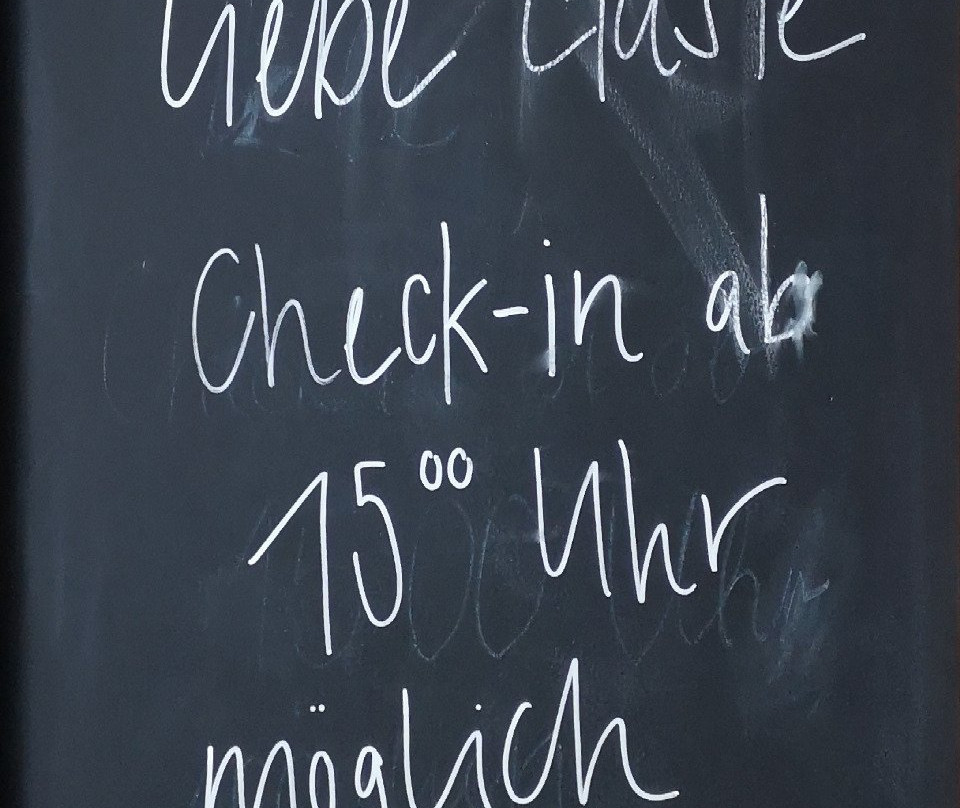 Liebe Gäste
Check-in ab
15⁰⁰ Uhr
möglich